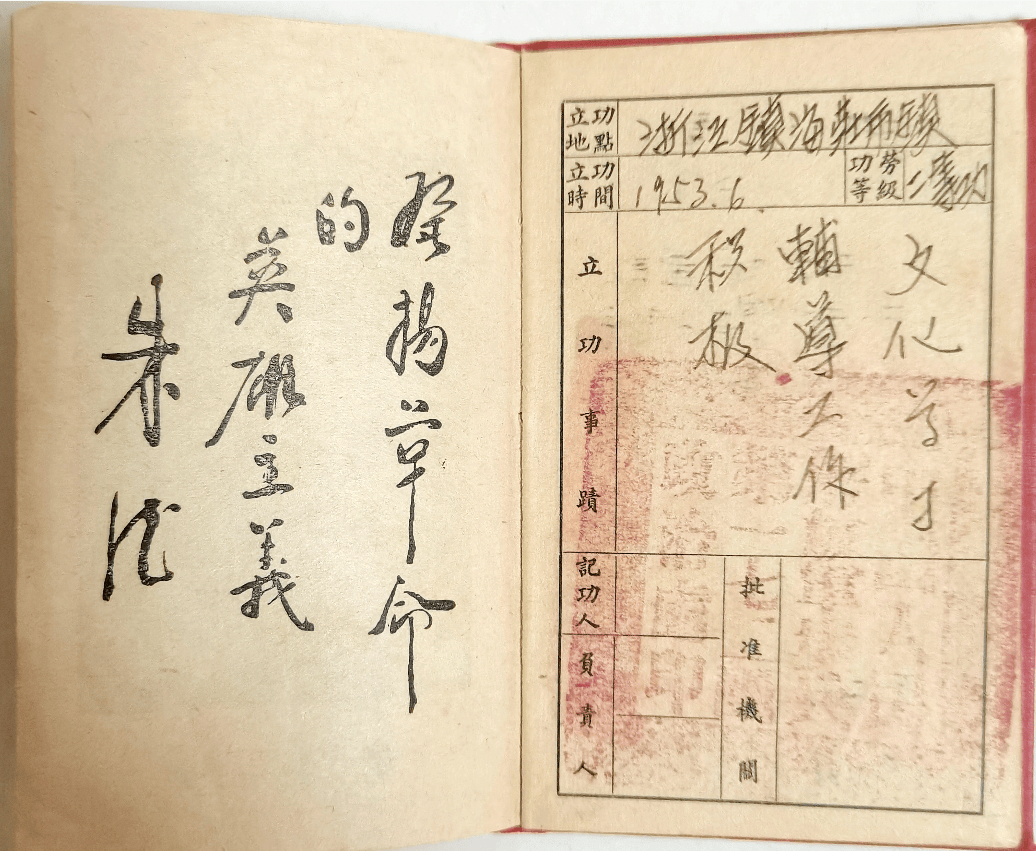 發揚革命
的
英雄主義
朱德
立功地點 浙江鎮海
立功時間 1953.6. 功勞等級 二等功
立功事蹟
文化学习
輔導工作
积极
記功人
負責人
批准機關